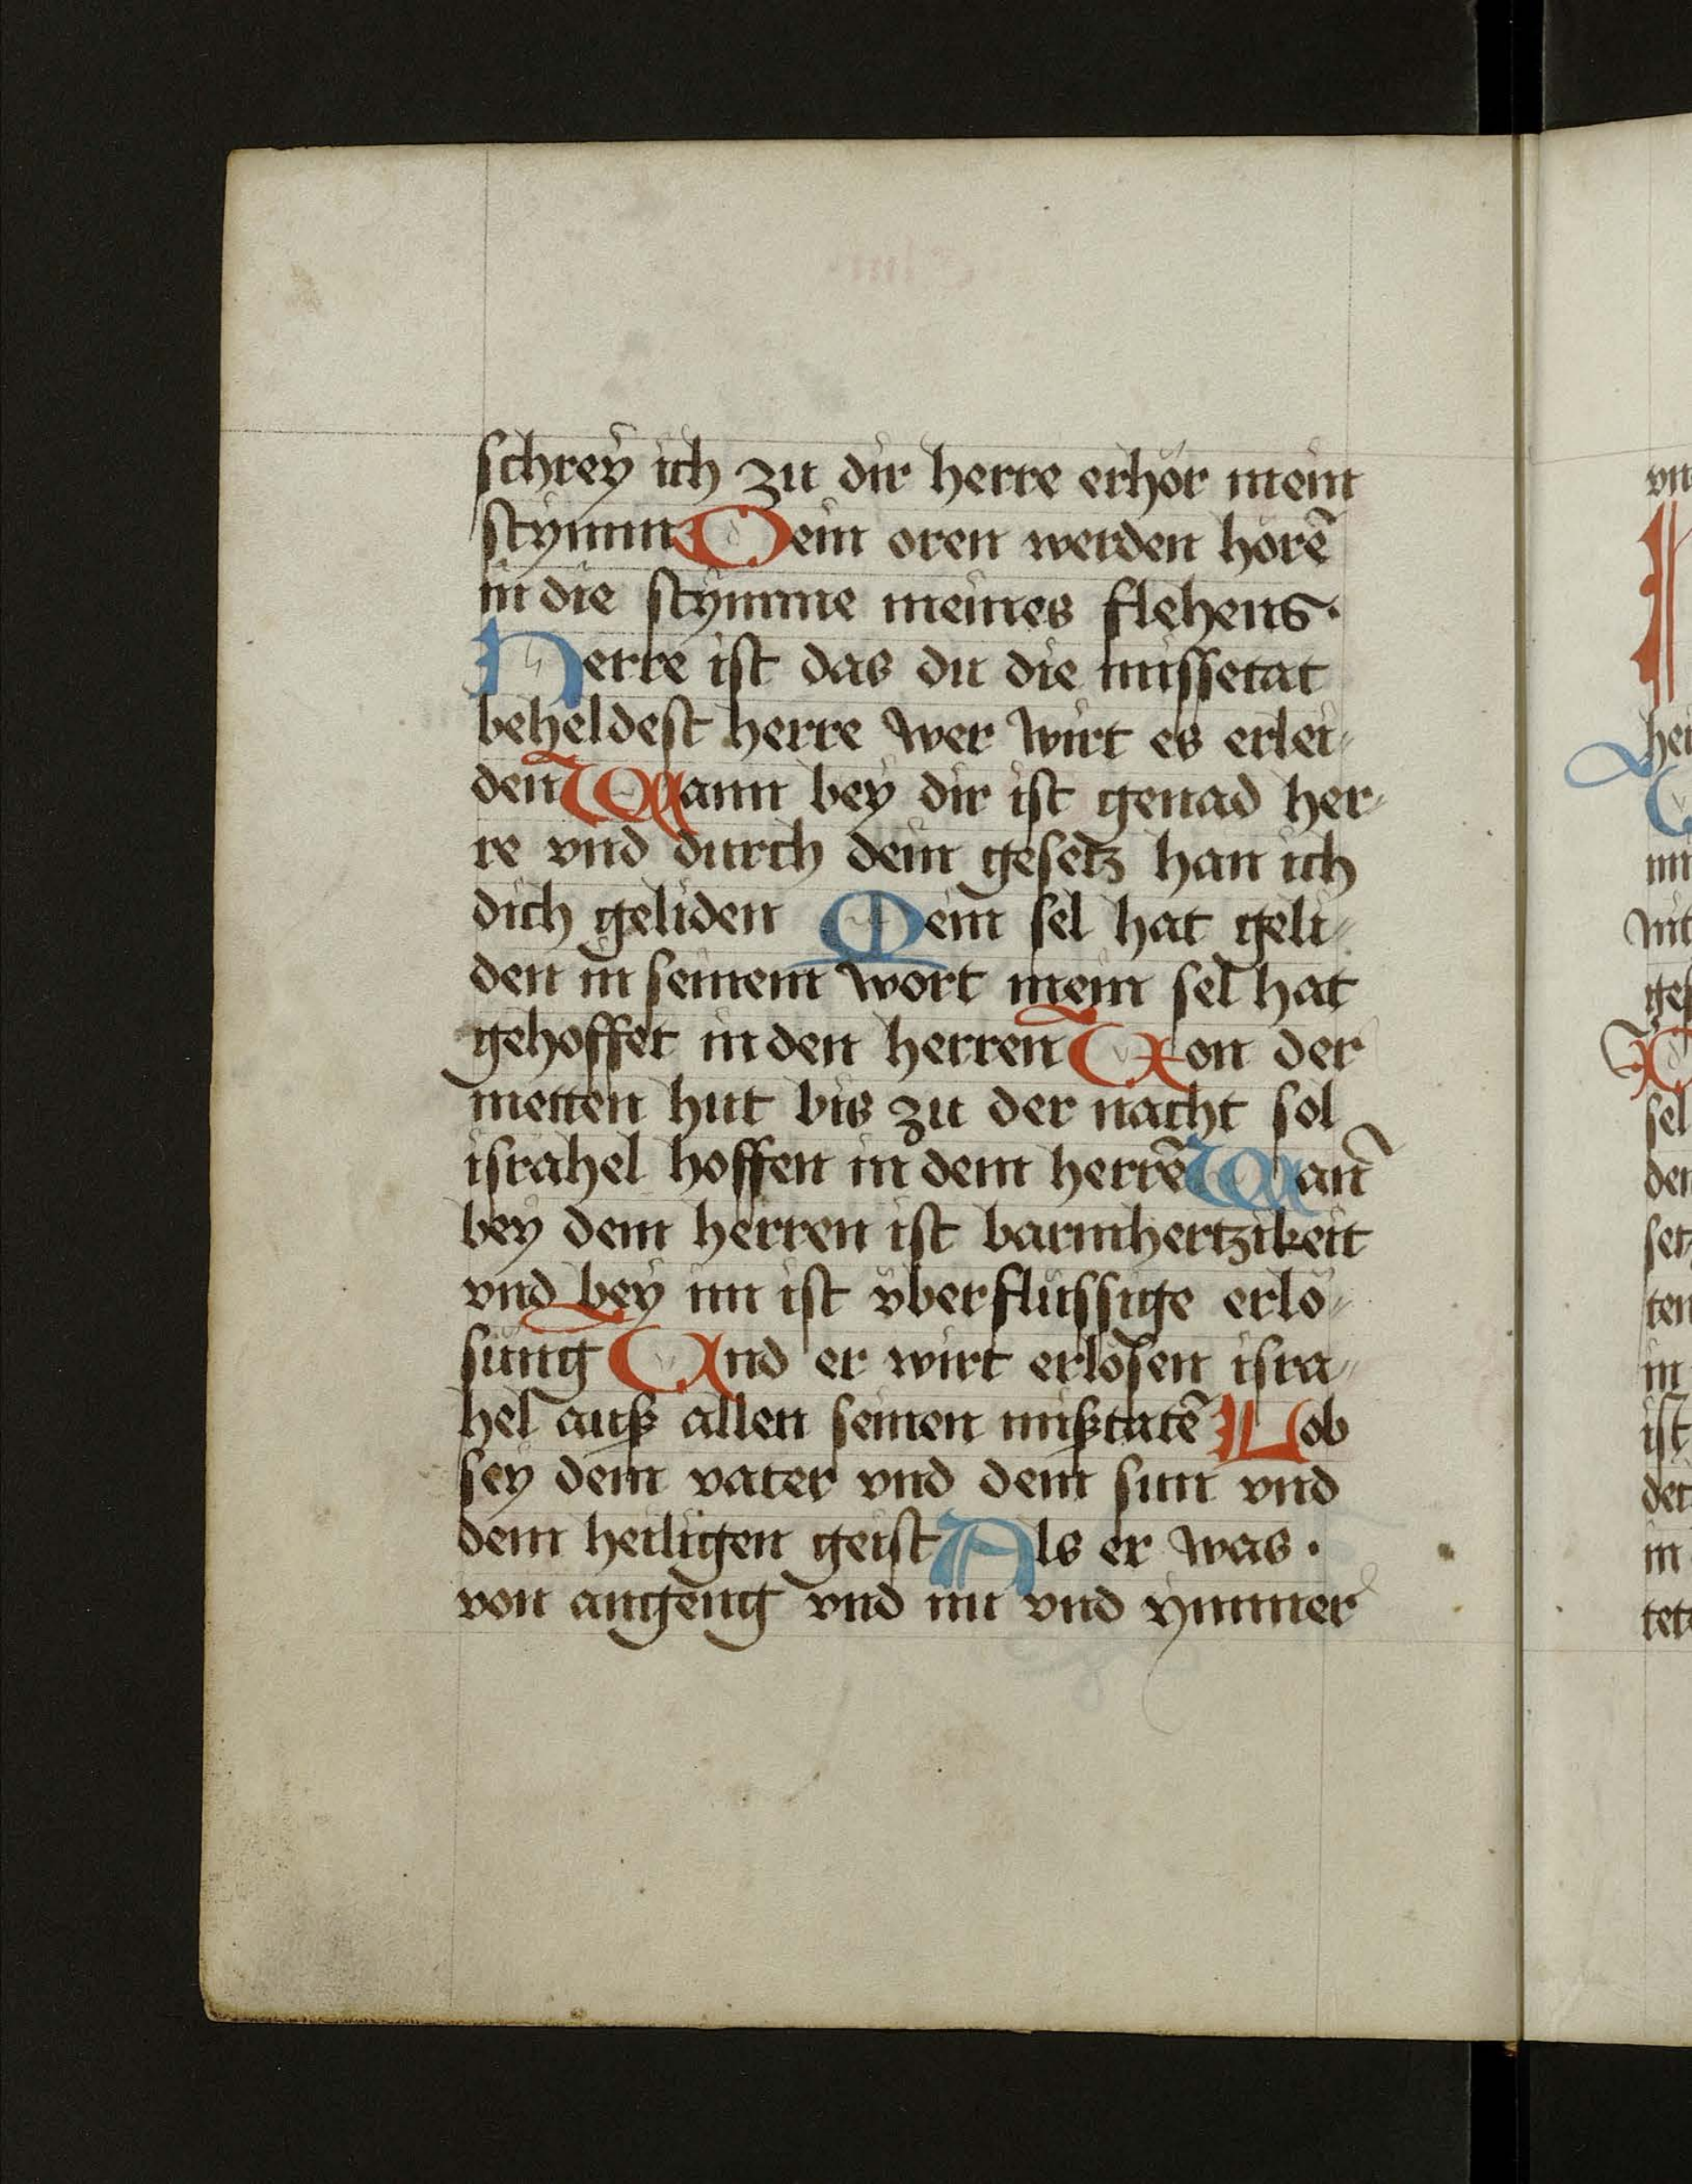 schrey ich zu dir herre erhör mein
stymm Dein oren werden hörē
in die stymme meines flehens·
Herre ist das du die missetat
beheldest herre wer wirt es erlei⸗
den Wann bey dir ist genad her⸗
re vnd durch dein gesetz han ich
dich geliden Mein sel hat geli⸗
den in seinem wort mein sel hat
gehoffet in den herren Von der
metten hut bis zu der nacht sol
israhel hoffen in dem herrē Wan̄
bey dem herren ist barmhertzikeit
vnd bey im ist vberflüssige erlö⸗
sung Vnd er wirt erlösen isra⸗
hel auß allen seinen mißtatē Lob
sey dem vater vnd dem sun vnd
dem heiligen geist Als er was·
von angeng vnd nu vnd ymmer